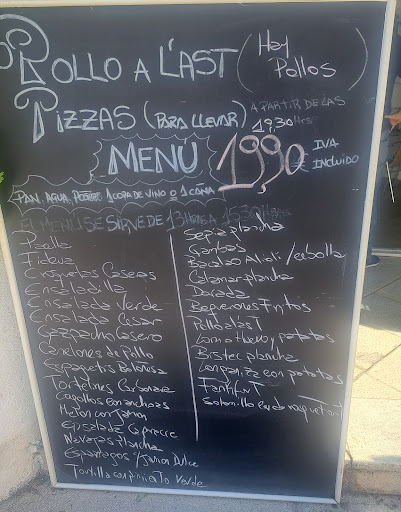 Pollo a l'ast (Hay Pollos)
Pizzas (Para llevar) A partir de las 19,30 Hrs
MENU 19,90 € IVA incluido
Pan, agua, postre 1 copa de vino o 1 caña
El menu se sirve de 13 a 15:30
Paella
Fideua
Croquetas Caseras
Ensaladilla
Ensalada Verde
Ensalada Cesar
Gazpacho Casero
Canelones de Pollo
Espaguetis Bolonesa
Tortelines Carbonara
Cogollos con anchoas
Melon con Jamon
Ensalada Caprecce
Navajas Plancha
Esparragos / Jamon Dulce
Tortilla con pimiento Verde
Sepia plancha
Gambas
Bacalao Alioli / cebolla
Calamar plancha
Dorada
Boquerones Fritos
Pollo a las T
Lomo Huevo y patatas
Bistec plancha
Longaniza con patatas